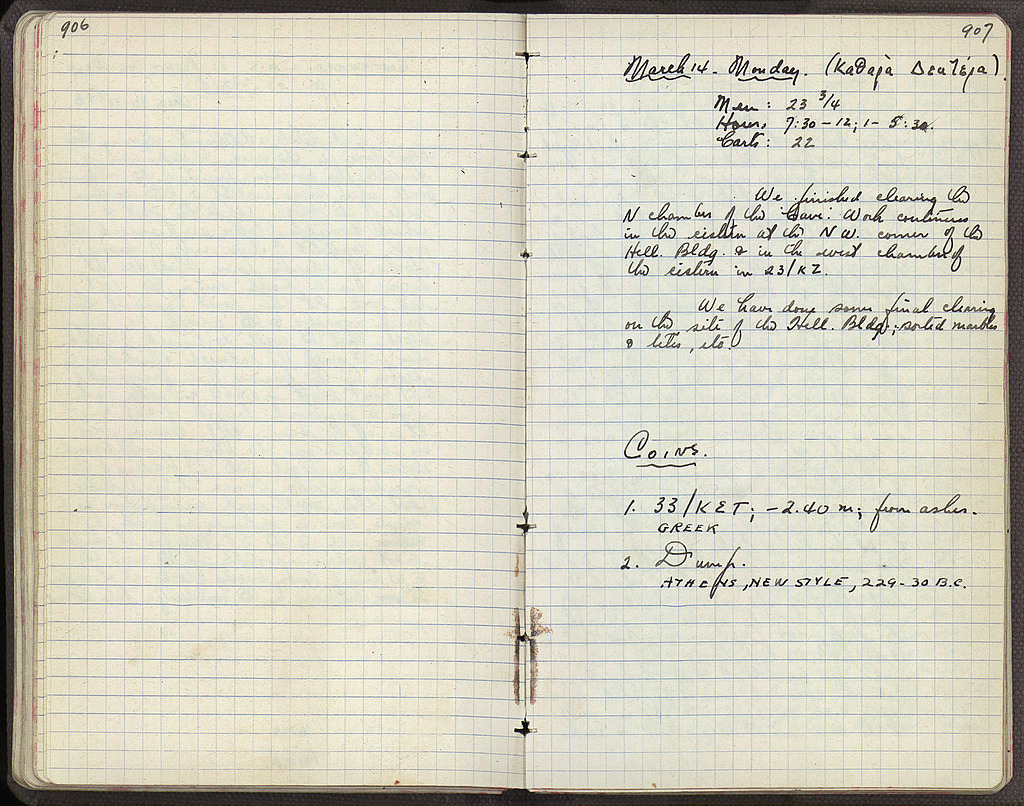 906
907
March 14 - Monday. (Καθαρὰ Δευτέρα).
Men: 23 3/4
Hours: 7:30 - 12; 1 - 5:30.
Carts: 22
We finished clearing the
N chamber of the 'Cave'. Work continues
in the cistern at the NW. corner of the
Hell. Bldg. & in the west chamber of
the cistern in 23/ΚΖ.
We have done some final clearing
on the site of the Hell. Bldg.; sorted marbles
& tiles, etc.
Coins.
1. 33/ΚΣΤ; -2.40 m; from ashes.
GREEK
2. Dump.
ATHENS, NEW STYLE, 229-30 B.C.